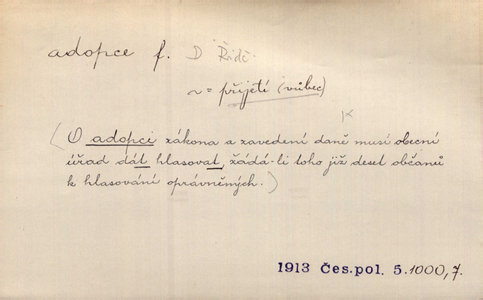 adopce f. D Řidč.
~ = přijetí (vůbec)
(O adopci zákona a zavedení daně musí obecní
úřad dát hlasovat, žádá-li toho již deset občanů
k hlasování oprávněných.)
1913 Čes.pol. 5.1000,7.